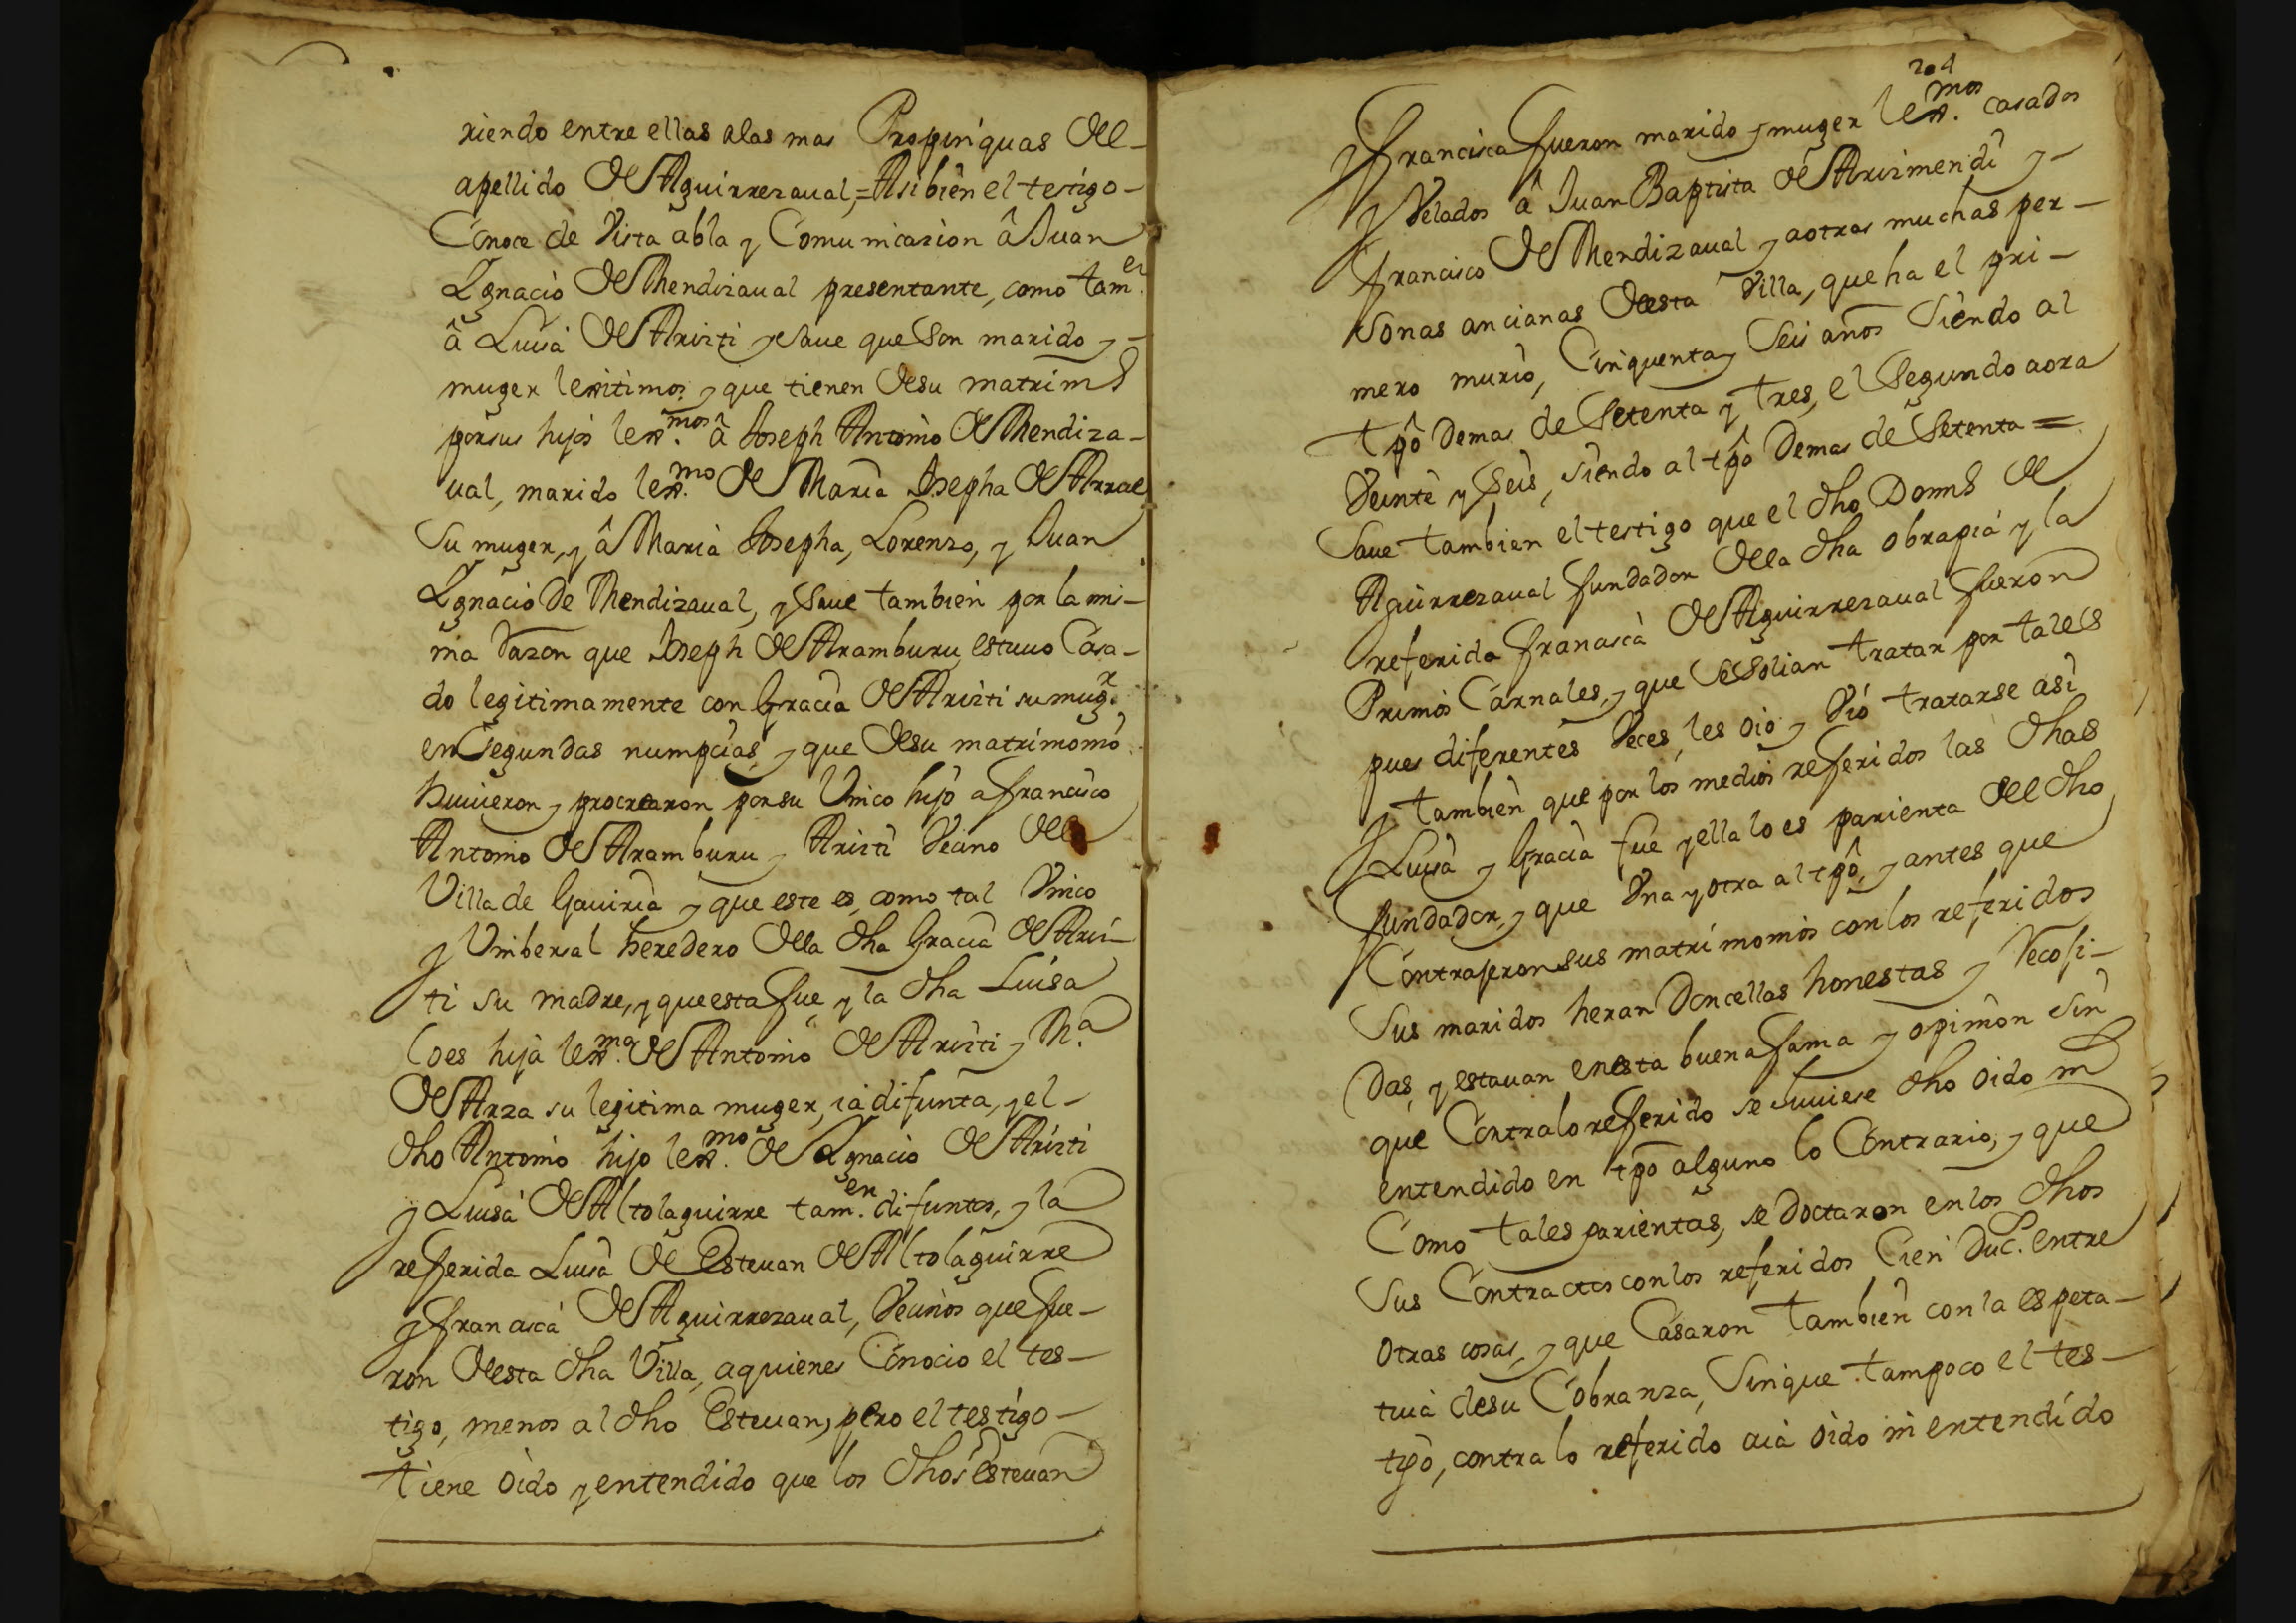 riendo entre ellas alas mas Propinquas del
apellido de Aguirrezaual,= Asi bien el testigo
Conoce de Vista abla y Comunicazion â Juan
Ygnacio de Mendizaual presentante, como tam.en
â Luisa de Aristi y save que son marido y
muger lexitimos y que tienen desu matrim.o
por sus hijos lex.mos â Joseph Antonio de Mendiza-
ual, marido lex.mo de Maria Josepha de Arrue
Su muger, y â Maria Josepha, Lorenzo, y Juan
Ygnacio de Mendizaual, y save tambien por la mis-
ma Razon que Joseph de Aramburu estuuo Casa-
do legitimamente con Gracia de Aristi su mug.r
en segundas numpcias, y que desu matrimonio
huuieron y procrearon por su Vnico hijo a francisco
Antonio de Aramburu y Aristi Vecino dela
Villa de Gauiria y que este es, como tal Vnico
y Vnibersal heredero dela dha Gracia de Aris-
ti su madre, y que esta fue, y la dha Luisa
lo es hija lex.ma de Antonio de Aristi y M.a
de Arza su legitima muger, ia difunta, y el
dho Antonio hijo lex.mo de Ygnacio de Aristi
y Luisa de Altolaguirre tam.en difuntos, y la
referida Luisa de Esteuan de Altolaguirre
y francisca de Aguirrezaual, Vecinos que fue-
ron desta dha Villa, aquienes Conocio el tes-
tigo, menos al dho Esteuan, pero el testigo
tiene oido y entendido que los dhos Esteuan
204
y francisca fueron marido y muger lex.mos casados
y Velados â Juan Baptista de Arizmendi y
francisco de Mendizaual y aotras muchas per-
sonas ancianas desta Villa, que ha el pri-
mero murio, Cinquenta y seis años siendo al
tpô demas de setenta y tres, el segundo aora
Veinte y seis, siendo al tpô demas de setenta =
Saue tambien el testigo que el dho Dom.o de
Aguirrezaual fundador dela dha obrapia y la
referida francisca de Aguirrezaual fueron
Primos Carnales, y que se solian tratar por tales
pues diferentes Veces, les oio y Vio tratarse asi
y tambien que por los medios referidos las dhas
Luisa y Gracia fue y ella lo es parienta del dho
fundador, y que Vna y otra al tpô, y antes que
Contrajeron sus matrimonios con los referidos
Sus maridos heran Doncellas honestas y Recoji-
das, y estauan en esta buena fama y opinion sin
que Contra lo referido se huuiese dho oido ni
entendido en tpô alguno lo Contrario, y que
Como tales parientas, se doctaron en los dhos
Sus Contractos con los referidos Cien Duc.s entre
otras cosas, y que Casaron tambien con la espeta-
tiua desu Cobranza, Sin que tampoco el tes-
tigo, contra lo referido aia oido ni entendido